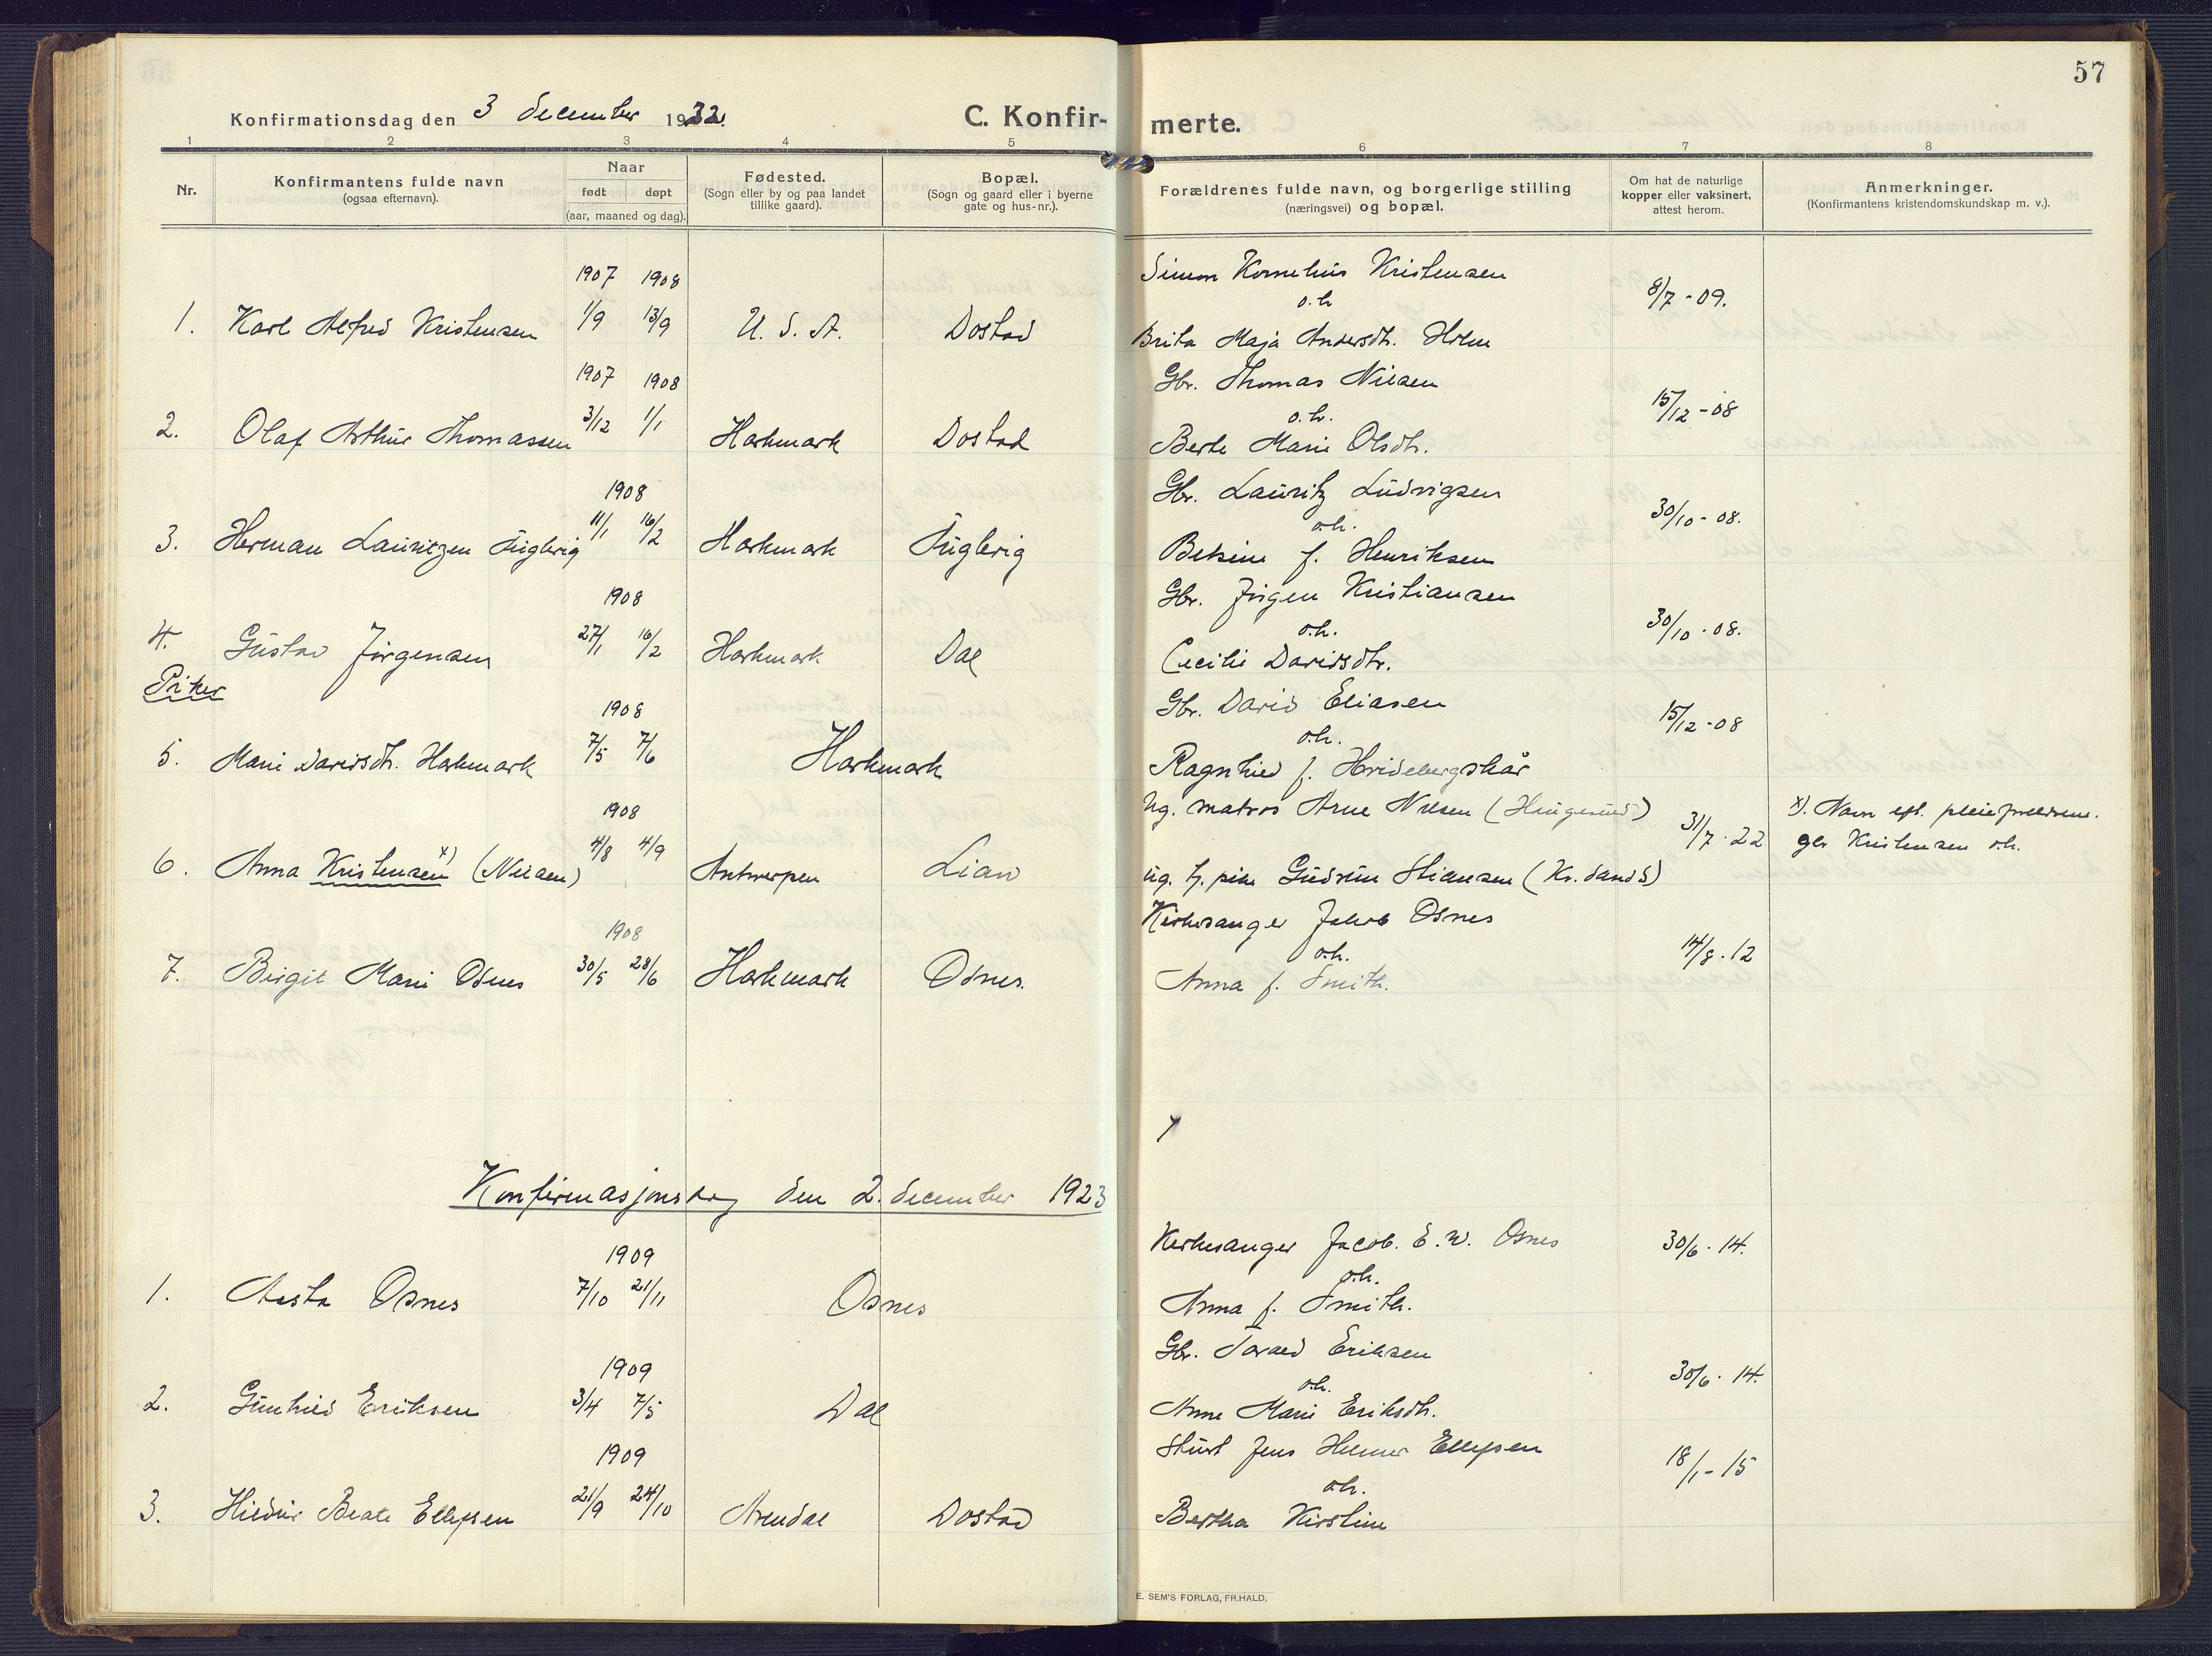 57
Konfirmationsdag den 3 december 1922.
C. Konfirmerte.
1 2 3 4 5 6 7 8
Nr.
Konfirmantens fulde navn
(ogsaa efternavn).
Naar
født døpt
(aar, maaned og dag).
Fødested.
(Sogn eller by og paa landet
tillike gaard).
Bopæl.
(Sogn og gaard eller i byerne
gate og hus-nr.).
Forældrenes fulde navn, og borgerlige stilling
(næringsvei) og bopæl.
Om hat de naturlige
kopper eller vaksinert,
attest herom.
Anmerkninger.
(Konfirmantens kristendomskundskap m. v.).
1907 1908 Simon Kornelius Kristensen
o.h
1. Karl Alfred Kristensen 1/9 13/9 U. S. A. Dostad 8/7 - 09.
Brita Maja Andersdtr. Holm
1907 1908 Gbr. Thomas Nilsen
o.h.
2. Olaf Arthur Thomassen 3/12 1/1 Harkmark Dostad 15/12 - 08
Berte Marie Olsdtr.
1908 Gbr. Lauritz Ludvigsen
o.h.
3. Herman Lauritzen Fuglevig 11/1 16/2 Harkmark Fuglevig 30/10 - 08.
Betsine f. Henriksen
1908 Gbr. Jørgen Kristiansen
o.h.
4. Gustav Jørgensen 27/1 16/2 Harkmark Dal 30/10 - 08.
Cecilie Davidsdtr.
Piker
1908 Gbr. David Eliasen
o.h.
5. Marie Davidsdtr. Harkmark 7/5 7/6 Harkmark 15/12 - 08
Ragnhild f. Hvidebergskår
1908 Ug. matros Arne Nilsen (Haugesund)
6. Anna Kristensen x) (Nilsen) 4/8 4/9 Antwerpen Lian 31/7 - 22 x). Navn eft. pleieforeldrene.
gbr Kristensen o.h.
ug. tj. pike Gudrun Stiansen (Kr.sand S)
1908 Kirkesanger Jakob Osnes
o.h.
7. Birgit Marie Osnes 30/5 28/6 Harkmark Osnes. 14/8 - 12
Anna f. Smith.
Konfirmasjonsdag den 2. december 1923
1909 Kirkesanger Jacob. E. W. Osnes 30/6 - 14.
o.h.
1. Aasta Osnes 7/10 21/11 Osnes
Anna f. Smith.
1909 Gbr. Torald Eriksen 30/6 - 14.
o.h.
2. Gunhild Eriksen 3/4 7/5 Dal
Anne Marie Eriksdtr.
1909 Jens Helmer Ellefsen 18/1 - 15
o.h.
3. Hildur Beate Ellefsen 21/9 24/10 Arendal Dostad
Bertha Kirstine
E. SEM'S FORLAG, FR.HALD.